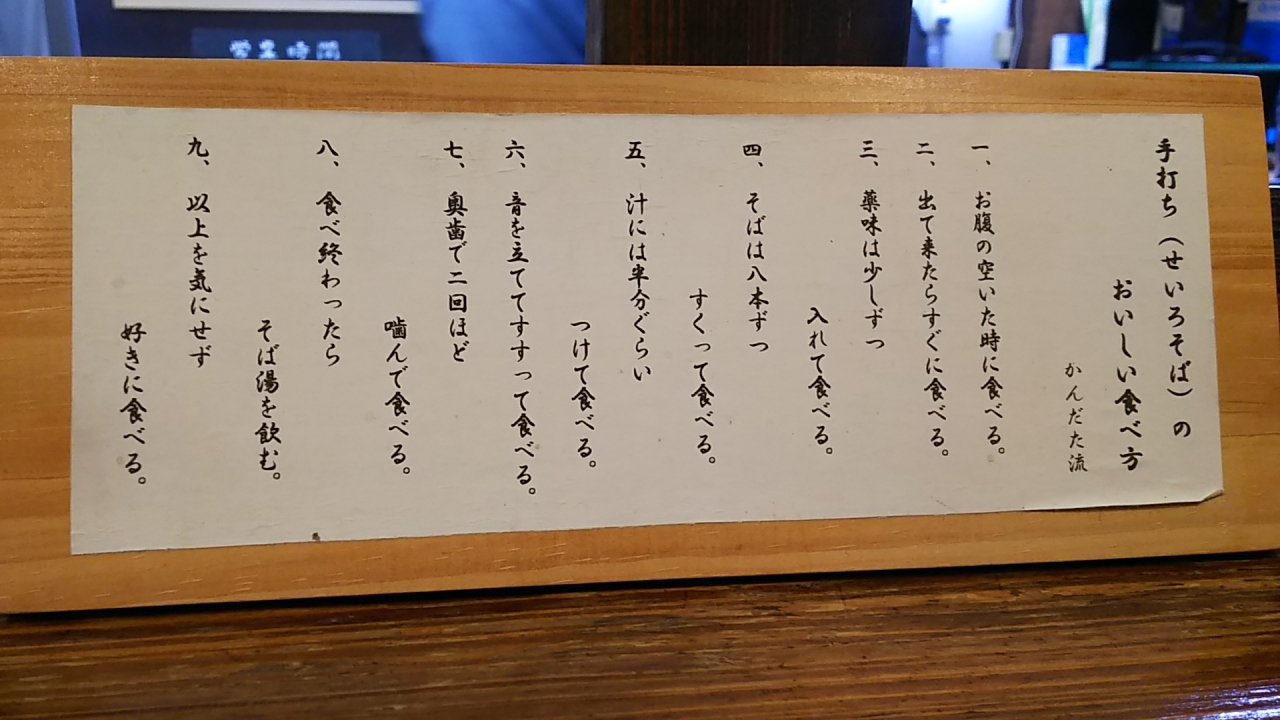 営業時間
手打ち（せいろそば）の
おいしい食べ方
かんだた流
一、お腹の空いた時に食べる。
二、出て来たらすぐに食べる。
三、薬味は少しずつ
入れて食べる。
四、そばは八本ずつ
すくって食べる。
五、汁には半分ぐらい
つけて食べる。
六、音を立ててすすって食べる。
七、奥歯で二回ほど
噛んで食べる。
八、食べ終わったら
そば湯を飲む。
九、以上を気にせず
好きに食べる。